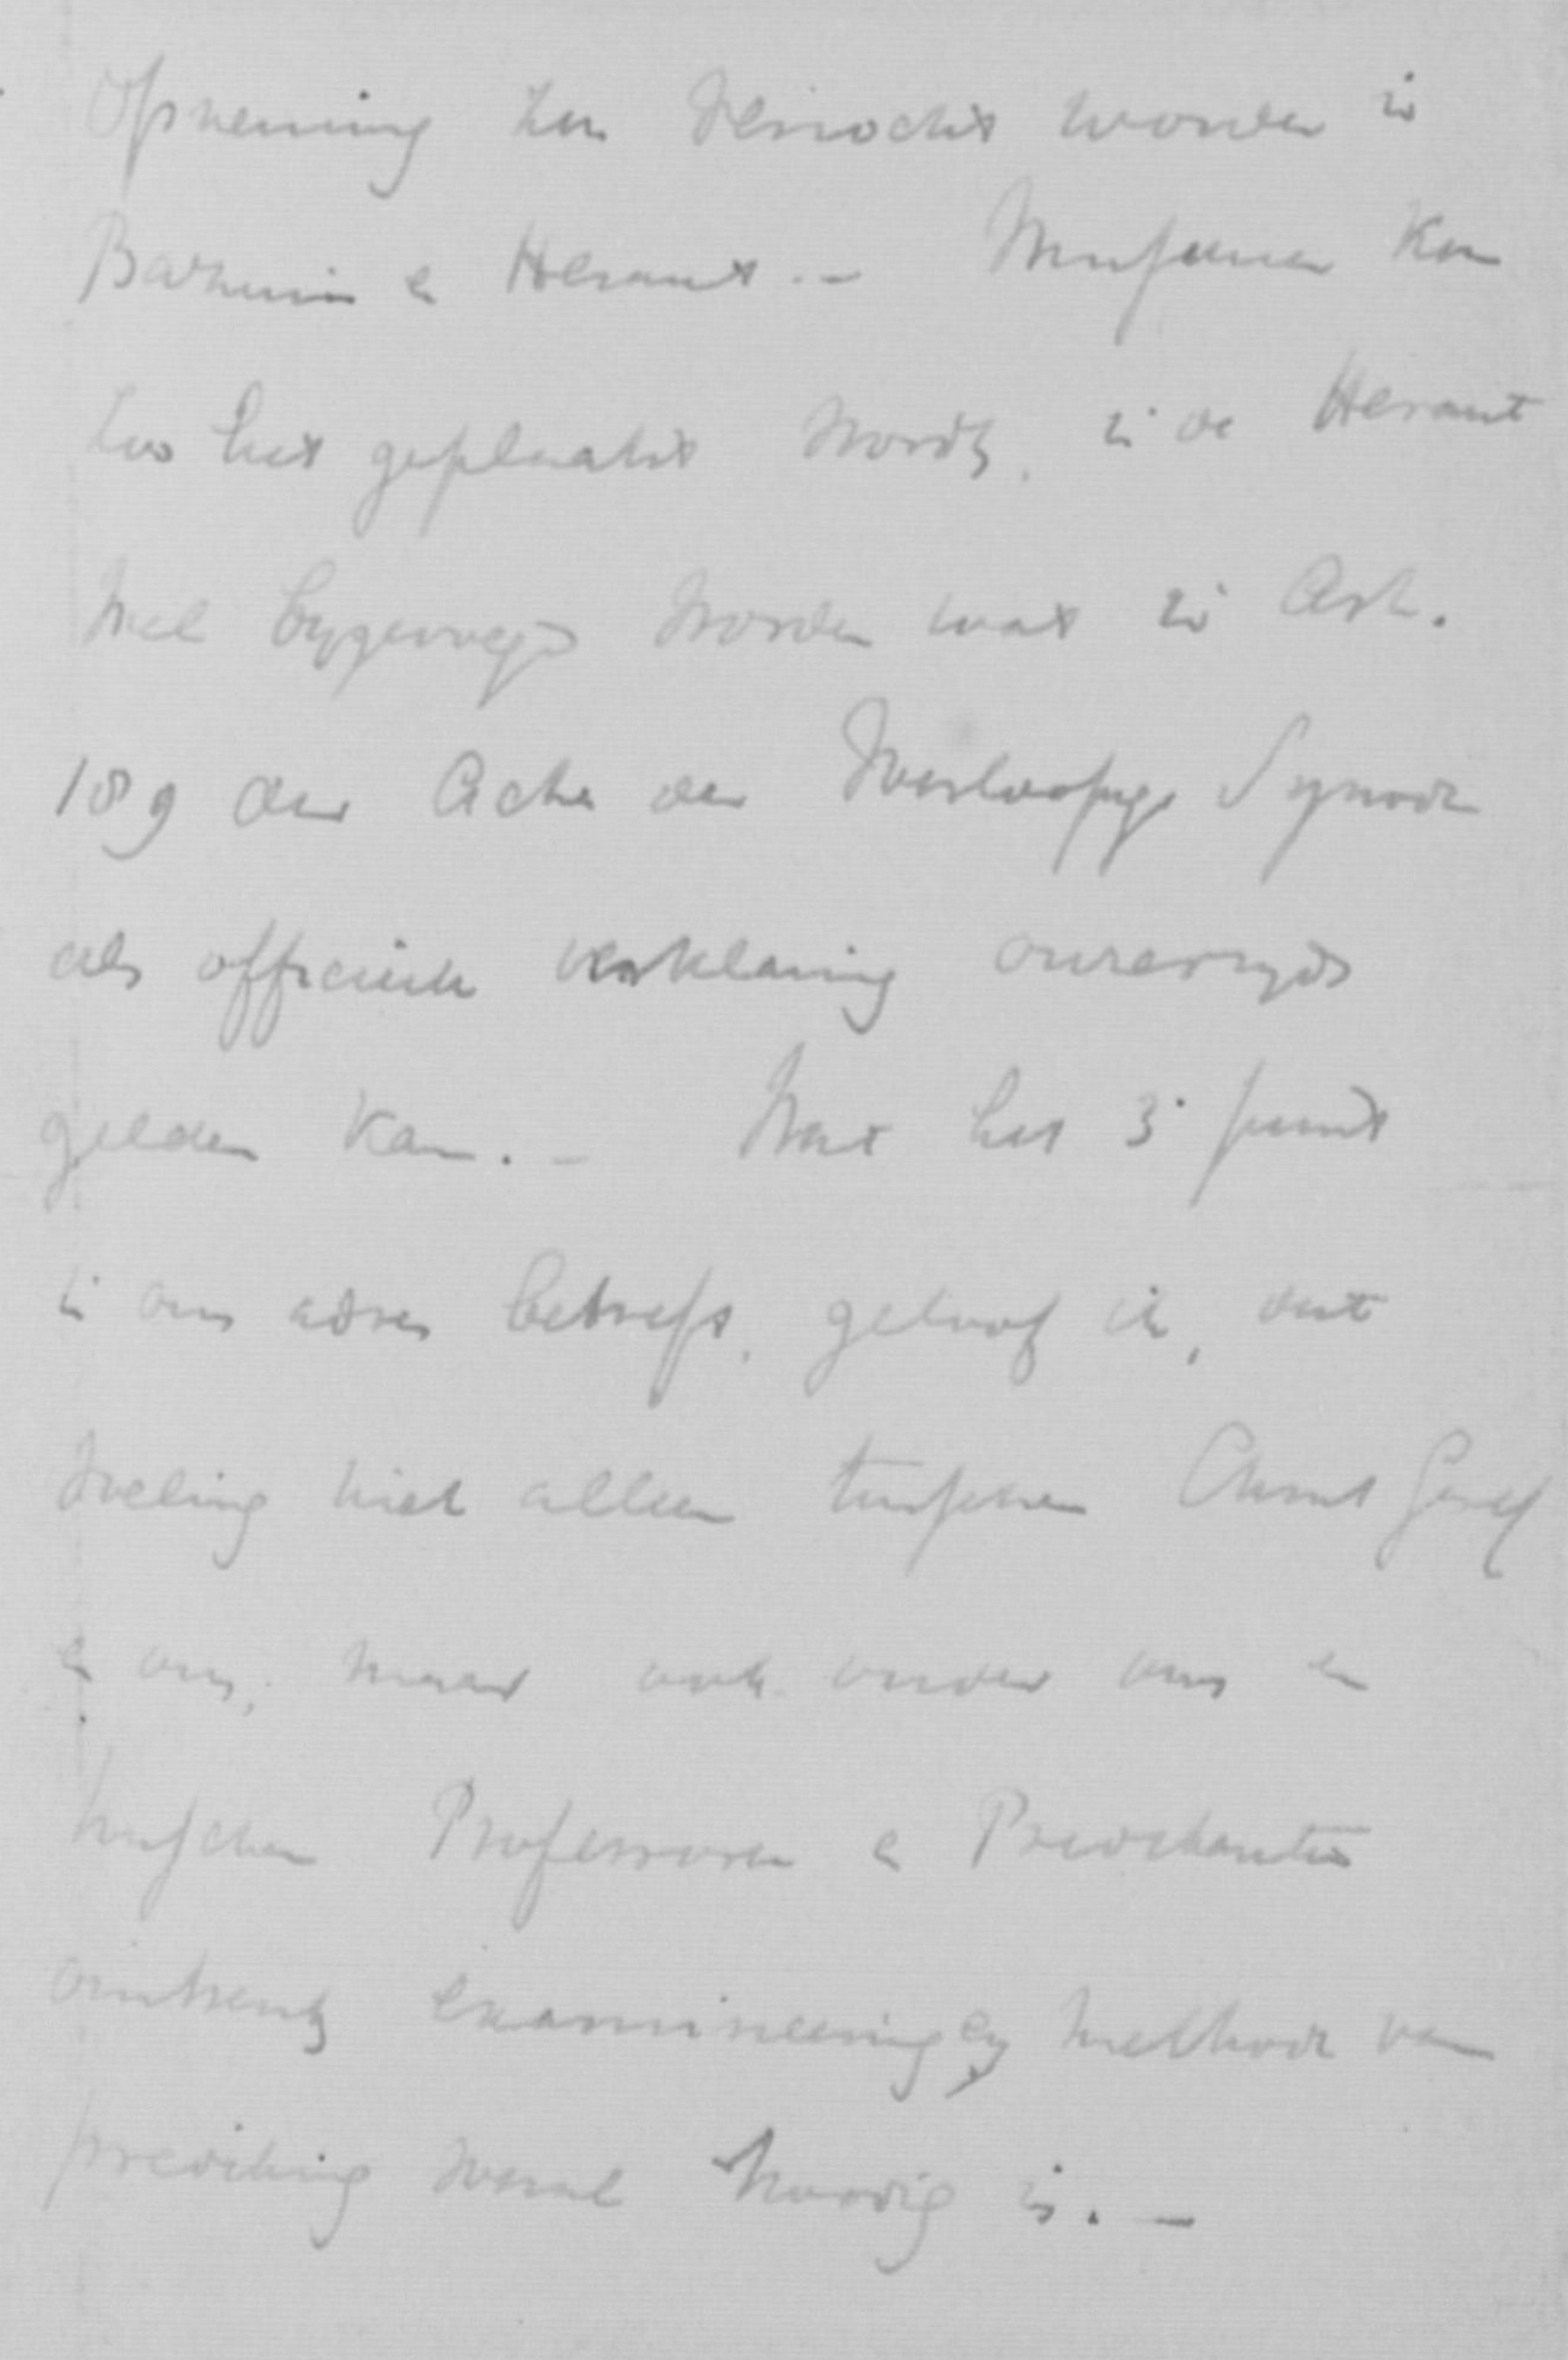 Opneming kan verzocht worden in
Bazuin en Heraut. — Misschien kan
zoo het geplaatst wordt, in de Heraut
wel bygevoegd worden wat in Art.
189 der Acta der Voorloopige Synode
als officieele verklaring onzerzyds
gelden kan. — Wat het 3e punt
in ons adres betreft, geloof ik, dat
heeling niet alleen tusschen Christ Geref
en ons, maar ook onder ons en
tusschen Professoren en Predikanten
omtrent examineering en methode van
prediking vooral noodig is. —